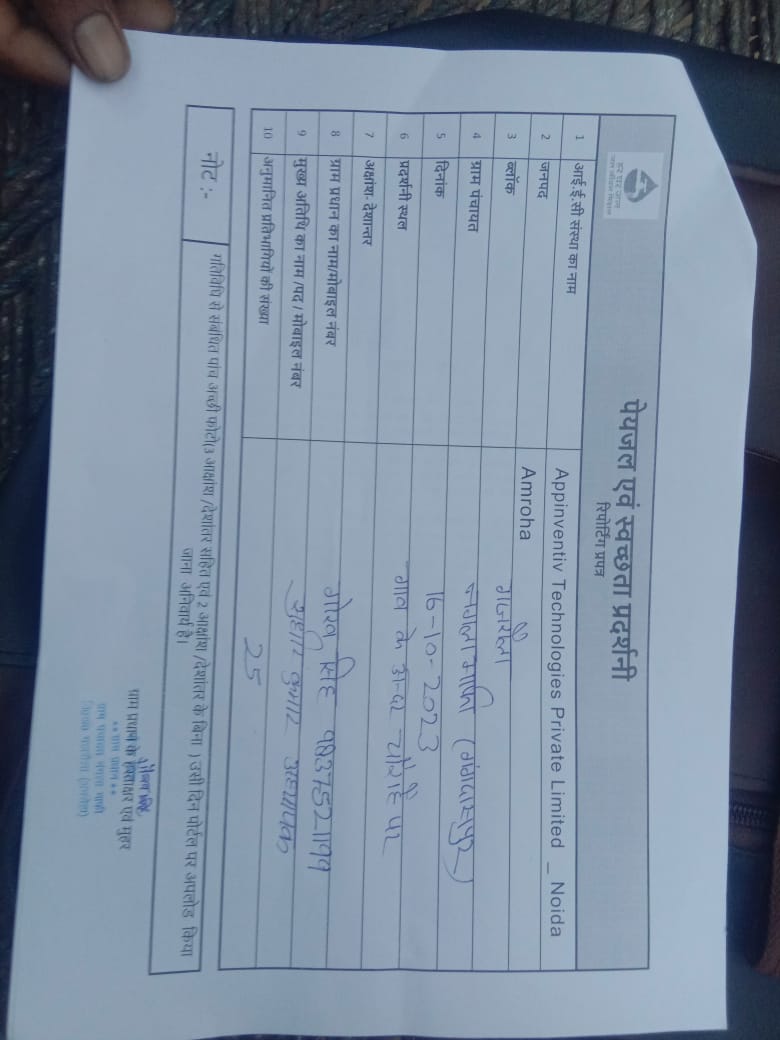 हर घर जल
जल जीवन मिशन
पेयजल एवं स्वच्छता प्रदर्शनी
रिपोर्टिंग प्रपत्र
1 आई.ई.सी संस्था का नाम Appinventiv Technologies Private Limited _ Noida
2 जनपद Amroha
3 ब्लॉक गजरौला
4 ग्राम पंचायत नगला माफी
5 दिनांक 16-10-2023
6 प्रदर्शनी स्थल गांव के अन्दर चौराहे पर
7 अक्षांश- देशान्तर
8 ग्राम प्रधान का नाम/मोबाइल नंबर सिंह
9 मुख्य अतिथि का नाम /पद / मोबाइल नंबर कुमार अध्यापक
10 अनुमानित प्रतिभागियों की संख्या 25
नोट :- गतिविधि से संबंधित पांच अच्छी फोटो(3 आक्षांश /देशांतर सहित एवं 2 आक्षांश /देशांतर के बिना ) उसी दिन पोर्टल पर अपलोड किया
जाना अनिवार्य है।
ग्राम प्रधान के हस्ताक्षर एवं मुहर